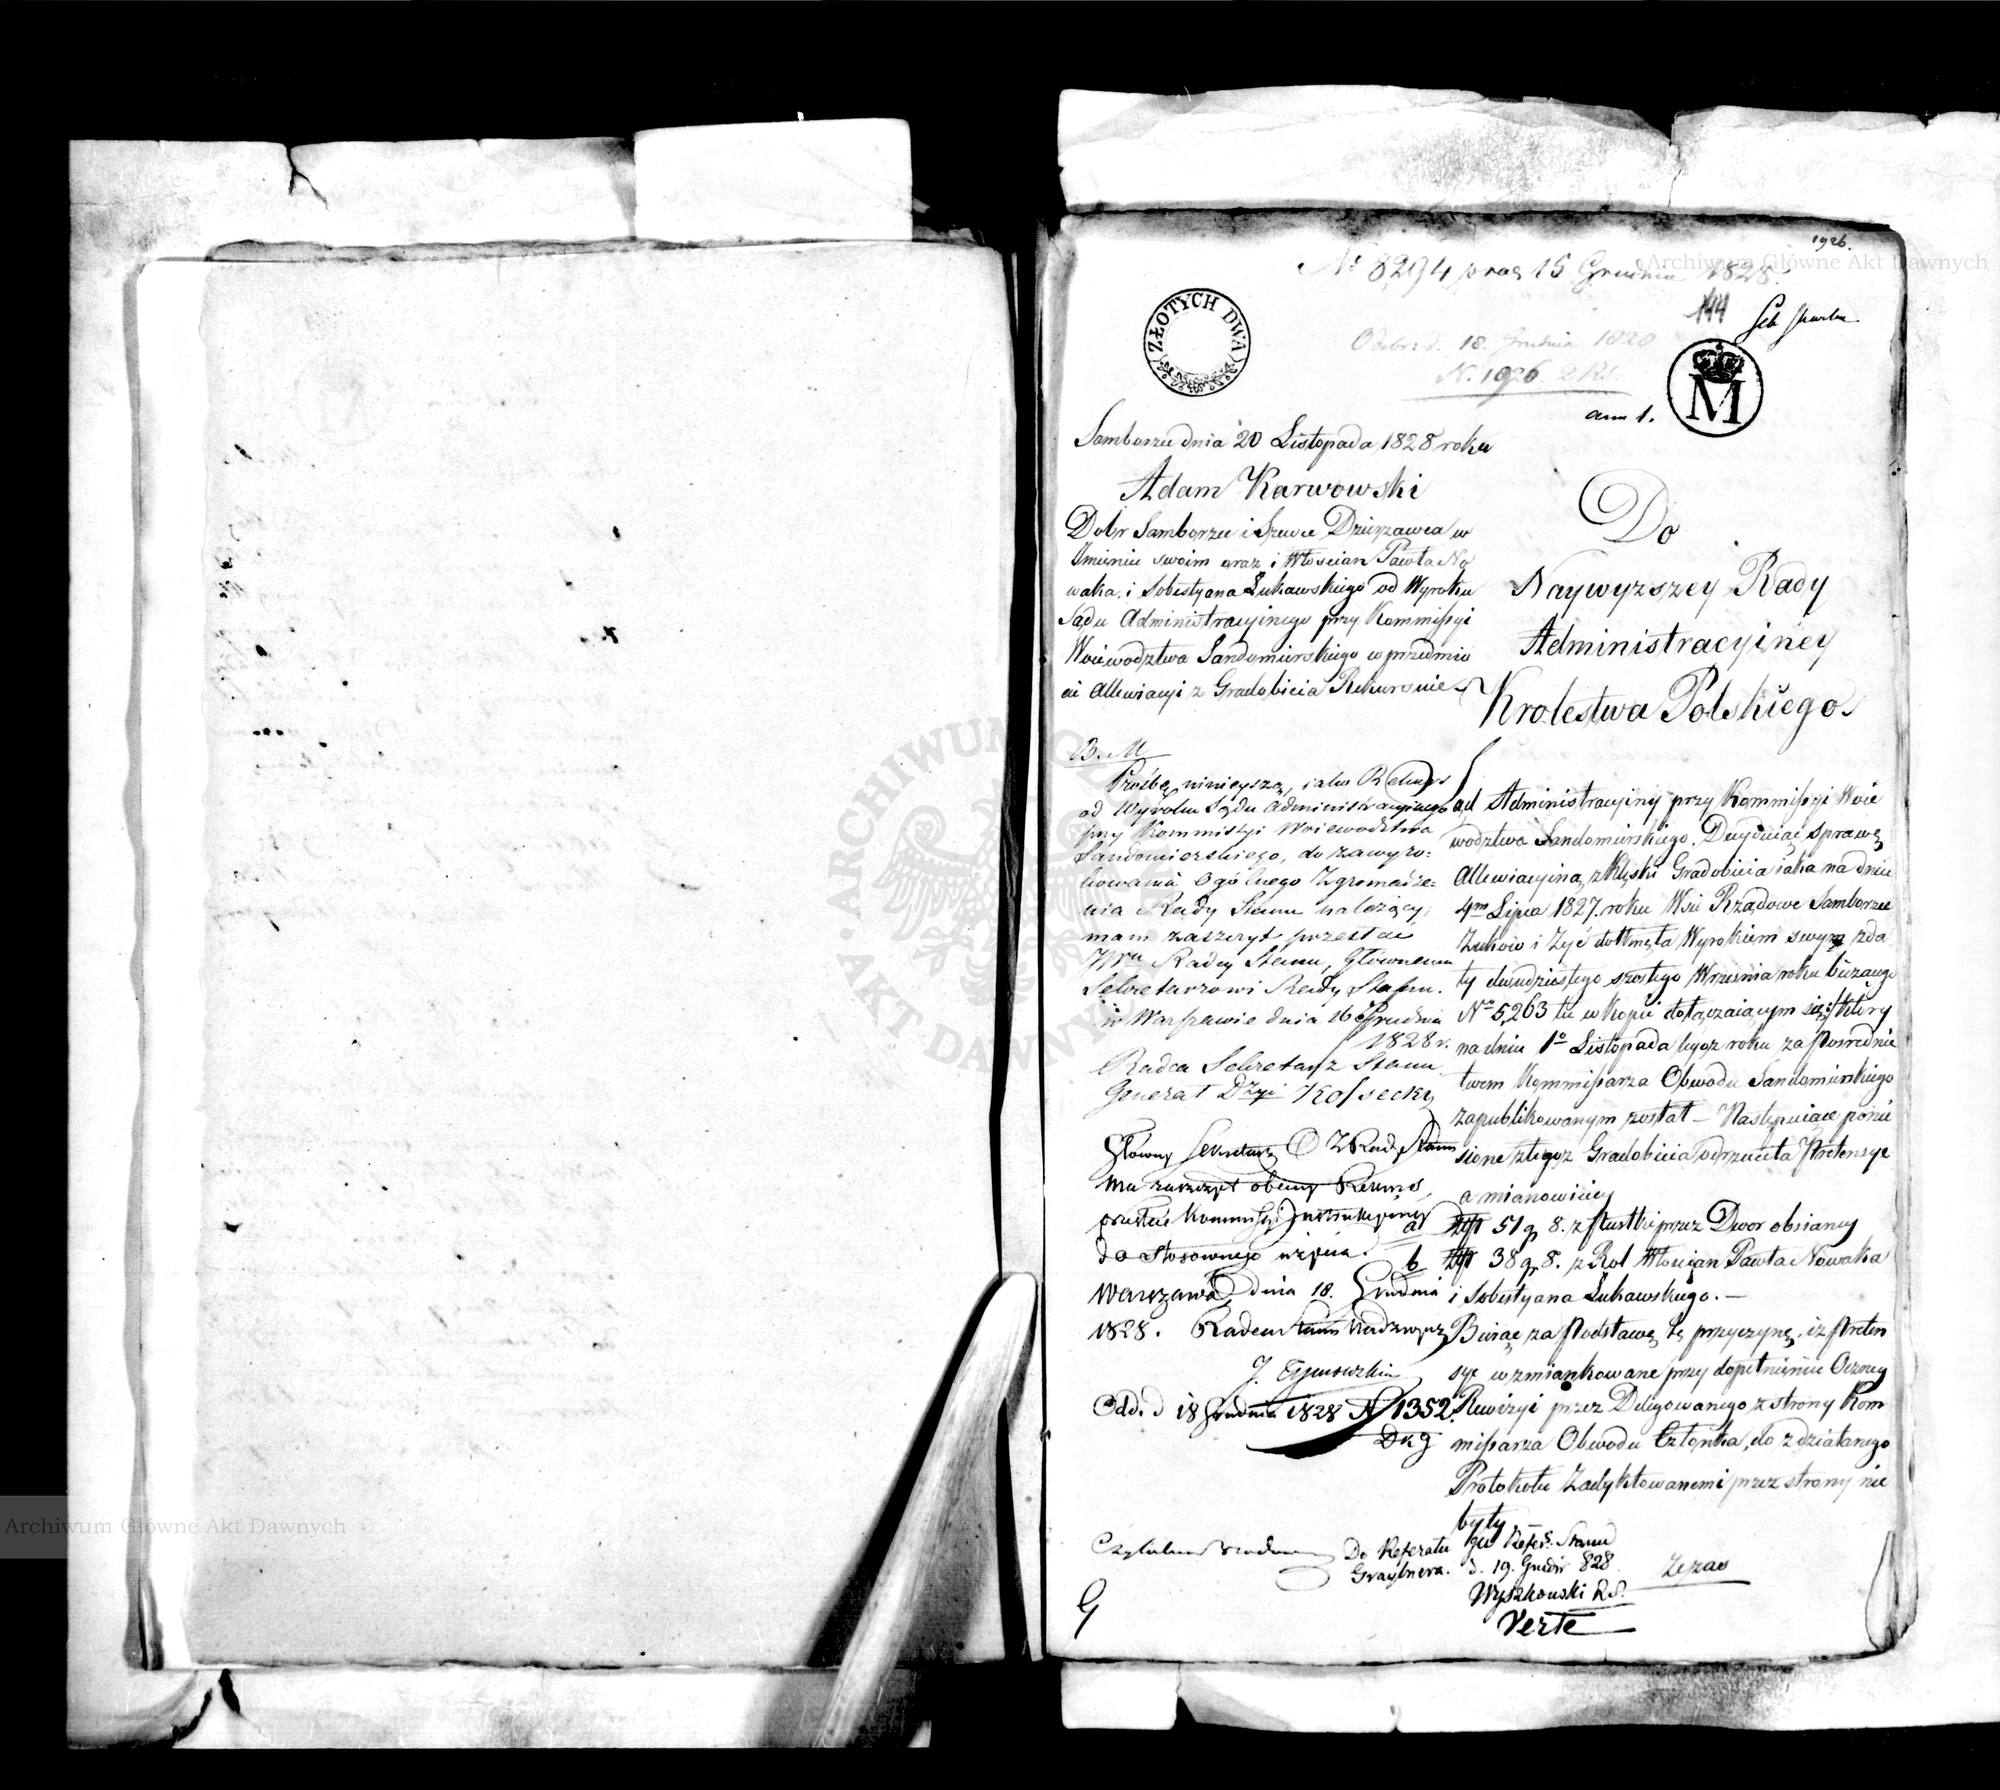 1926.
Nº 8294 pras 15 Grudnia 1828.
144
ZŁOTYCH DWA
Odebr: d. 18. Grudnia 1828
N. 1926. 2 RS.
M
ann 1.
Samborzu dnia 20 Listopada 1828 roku
Adam Karwowski
Dobr Samborzec i Dzierzawca w
Jmieniu swoim oraz i Włoscian Pawła No
waka i Sobestyana Łukawskiego od Wyroku
Sądu Administracyinego przy Kommissyi
Woiewodztwa Sandomirskiego w przedmio
cie Allewiacyi z Gradobicia Rekursuie
Do
Naywyzszey Rady
Administracyiney
Krolestwa Polskiego
B. M
Prośbę ninieyszą, iako Rekurs
od Wyroku Sądu Administracyinego
przy Kommissyi Woiewodztwa
Sandomierskiego, do zawyro:
kowania Ogólnego Zgromadze:
nia Rady Stanu należący;
mam zaszczyt przesłać
JWu Radcy Stanu, Głównemu
Sekretarzowi Rady Stanu.
w Warszawie dnia 16 Grudnia
1828 r.
Radca Sekretarz Stanu
Generał Dyzyi Kossecky
Główny Sekretarz Rady Stanu
ma zaszczyt obecny Rekurs,
przesłać Kommissyi Jnstrukcyiney
do stosownego użycia.
Warszawa, dnia 18. Grudnia
1828. Radca Stanu Nadzwycz
Odd. d 18 Grudnia 1828 N 1352.
Sąd Administracyiny przy Kommissyi Woie
wodztwa Sandomirskiego, Decyduiąc sprawę
Allewiacyiną z Klęski Gradobicia iaka na dniu
4m Lipca 1827. roku Wsie Rządowe Samborzec
Żuków i Żyć dotknęła Wyrokiem swym z da
ty dwudziestego szostego Września roku bieżącego
Nro 5,263 tu w Kopii dołączaiącym się: który
na dniu 1º Listopada tegoz roku za Posrednic
twem Kommissarza Obwodu Sandomirskiego
zapublikowanym został – Następuiące ponie
sione z tegoz Gradobicia odrzuciła Pretensye
a mianowicie
a złp 51 g 8. z Pustki przez Dwor obsianey
b złp 38 g 8. z Rol Włoscian Pawła Nowaka
i Sobestyana Łukawskiego. —
Biorąc za Podstawę tę przyczynę, iż Preten
sye wzmiankowane przy dopełnieniu Oczney
Rewizyi przez Delegowanego z strony Kom
missarza Obwodu Członka, do zdziałanego
Protokułu Zadyktowanemi przez strony nie
były
Do Referatu JW Refer. Stanu
Graybnera. d. 19. Grudnia 828
Wyszkowski R.S.
Verte
Archiwum Główne Akt Dawnych
Archiwum Główne Akt Dawnych
ARCHIWUM GŁÓWNE AKT DAWNYCH